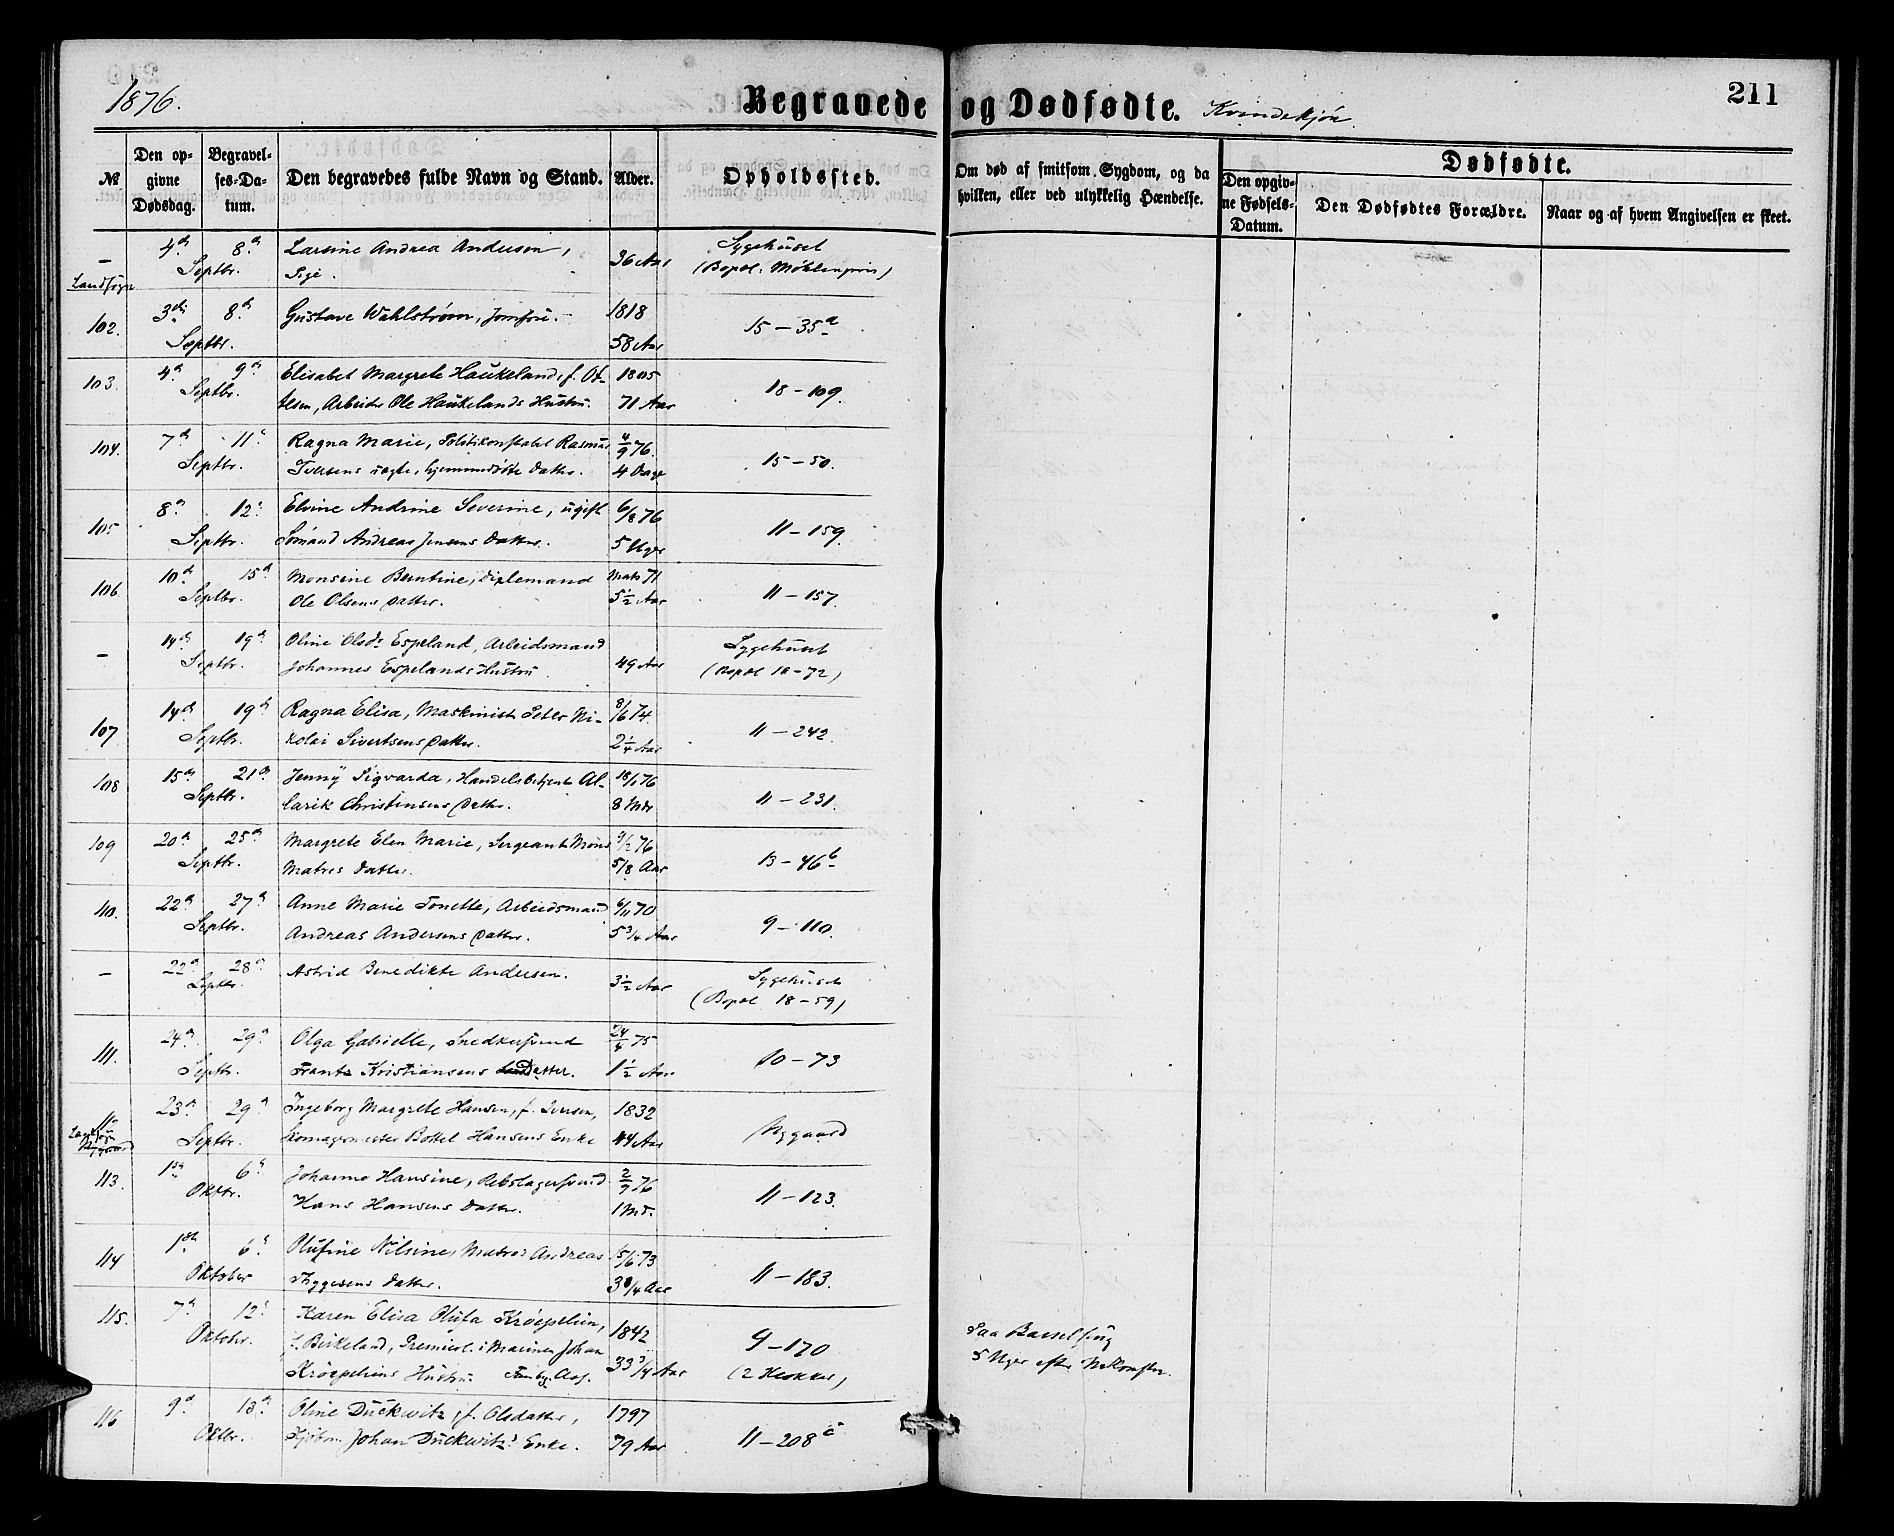 1876.
Begravede og Dødfødte. Kvindekjøn.
211
№
Den opgivne Dødsdag.
Begravelses-Datum.
Den begravedes fulde Navn og Stand.
Alder.
Opholdssted.
Om død af smitsom Sygdom, og da hvilken, eller ved ulykkelig Hændelse.
Dødfødte.
Den opgivne Fødsels-Datum.
Den Dødfødtes Forældre.
Naar og af hvem Angivelsen er skeet.
– 4de 8de Larsine Andrea Anderson, Sygehuset
Landsogn Septbr. Pige. 36 Aar (Bopæl: Møhlenpris)
102. 3die 8de Gustave Wahlstrøm, Jomfru. 1818 15–35a
Septbr. 58 Aar
103. 4de 9de Elisabet Margrete Haukeland, f. Ot- 1805 18–109.
Septbr. tesen, Arbeider Ole Haukelands Hustru. 71 Aar
104. 7de 11te Ragna Marie, Politikonstabel Rasmus 4/9 76. 15–50.
Septbr. Iversens uægte, hjemmedøbte Datter. 4 Dage
105 8de 12te Elvine Andrine Severine, ugift 6/8 76 11–159.
Septbr. Sømand Andreas Jensens Datter. 5 Uger
106 10de 15de Monsine Berntine, Piplemand Marts 71 11–157.
Septbr. Ole Olsens Datter. 5½ Aar
– 14de 19de Oline Olsdr Espeland, Arbeidsmand Sygehuset
Septbr. Johannes Espelands Hustru. 49 Aar (Bopæl 18–72)
107 14de 19de Ragna Elisa, Maskinist Peter Ni- 8/6 74. 11–242.
Septbr. kolai Sivertsens Datter. 2¼ Aar
108 15de 21de Jenny Sigvarda, Handelsbetjent Al- 18/1 76 11–231.
Septbr. larik Christensens Datter. 8 Mdr
109 20de 25de Margrete Elen Marie, Sergeant Mons 9/2 76 13–46b
Septbr. Matres Datter. 5/8 Aar
110. 22de 27de Anne Marie Tonette, Arbeidsmand 6/11 70 9–110.
Septbr. Andreas Andersens Datter. 5¾ Aar
– 22de 28de Astrid Benedikte Andersen. Sygehuset
Septbr. 3½ Aar (Bopæl 18–59)
111. 24de 29de Olga Gabrielle, Snedkersvend 24/4 75 10–73
Septbr. Frantz Kristiansens Datter. 1½ Aar
23de 29de Ingeborg Margrete Hansen, f. Iversen, 1832 Nygaard
Landsogn Nygaard Septbr. Skomagermester Bottel Hansens Enke 44 Aar
113. 1ste 6te Johanne Hansine, Rebslagersvend 2/9 76 11–123.
Oktbr. Hans Hansens Datter. 1 Md.
114 1ste 6te Olufine Nilsine, Matros Andreas 15/6 73 11–183.
Oktober Tyggesens Datter. 3¼ Aar
115. 7de 12te Karen Elisa Olufa Krøepelien, 1842 9–170
Oktobr. f. Birkeland, Premierl. i Marinen Johan 33¾ Aar (2 Klokker)
Krøepeliens Hustru.
Paa Barselseng
5 Uger efter Nedkomsten.
116 9de 13de Oline Dückwitz, f. Olsdatter, 1797 11–208c
Oktbr. Kjøbm. Johan Dückwitz' Enke. 79 Aar